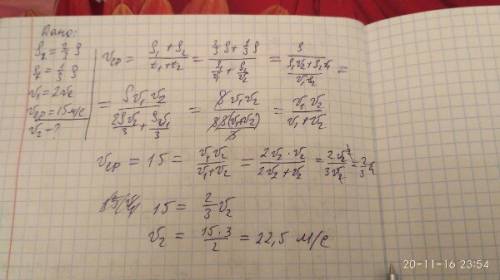 Дано:
S₂ = 2/3 S
S₁ = 1/3 S
v₁ = 2v₂
vср = 15 м/с
v₂ - ?
vср = (S₁ + S₂)/(t₁ + t₂) = (2/3 S + 1/3 S)/(S₁/v₁ + S₂/v₂) = S/((S₁v₂ + S₂v₁)/(v₁v₂)) =
= S v₁ v₂/(2Sv₂/3 + Sv₁/3) = S v₁ v₂/(S(v₁+v₂)/3) = v₁ v₂/(v₁ + v₂)
vср = 15 = v₁v₂/(v₁+v₂) = 2v₂ · v₂/(2v₂ + v₂) = 2v₂²/3v₂ = 2/3 v₂
15 = 2/3 v₂
v₂ = 15 · 3/2 = 22,5 м/с
20-11-16 23:54